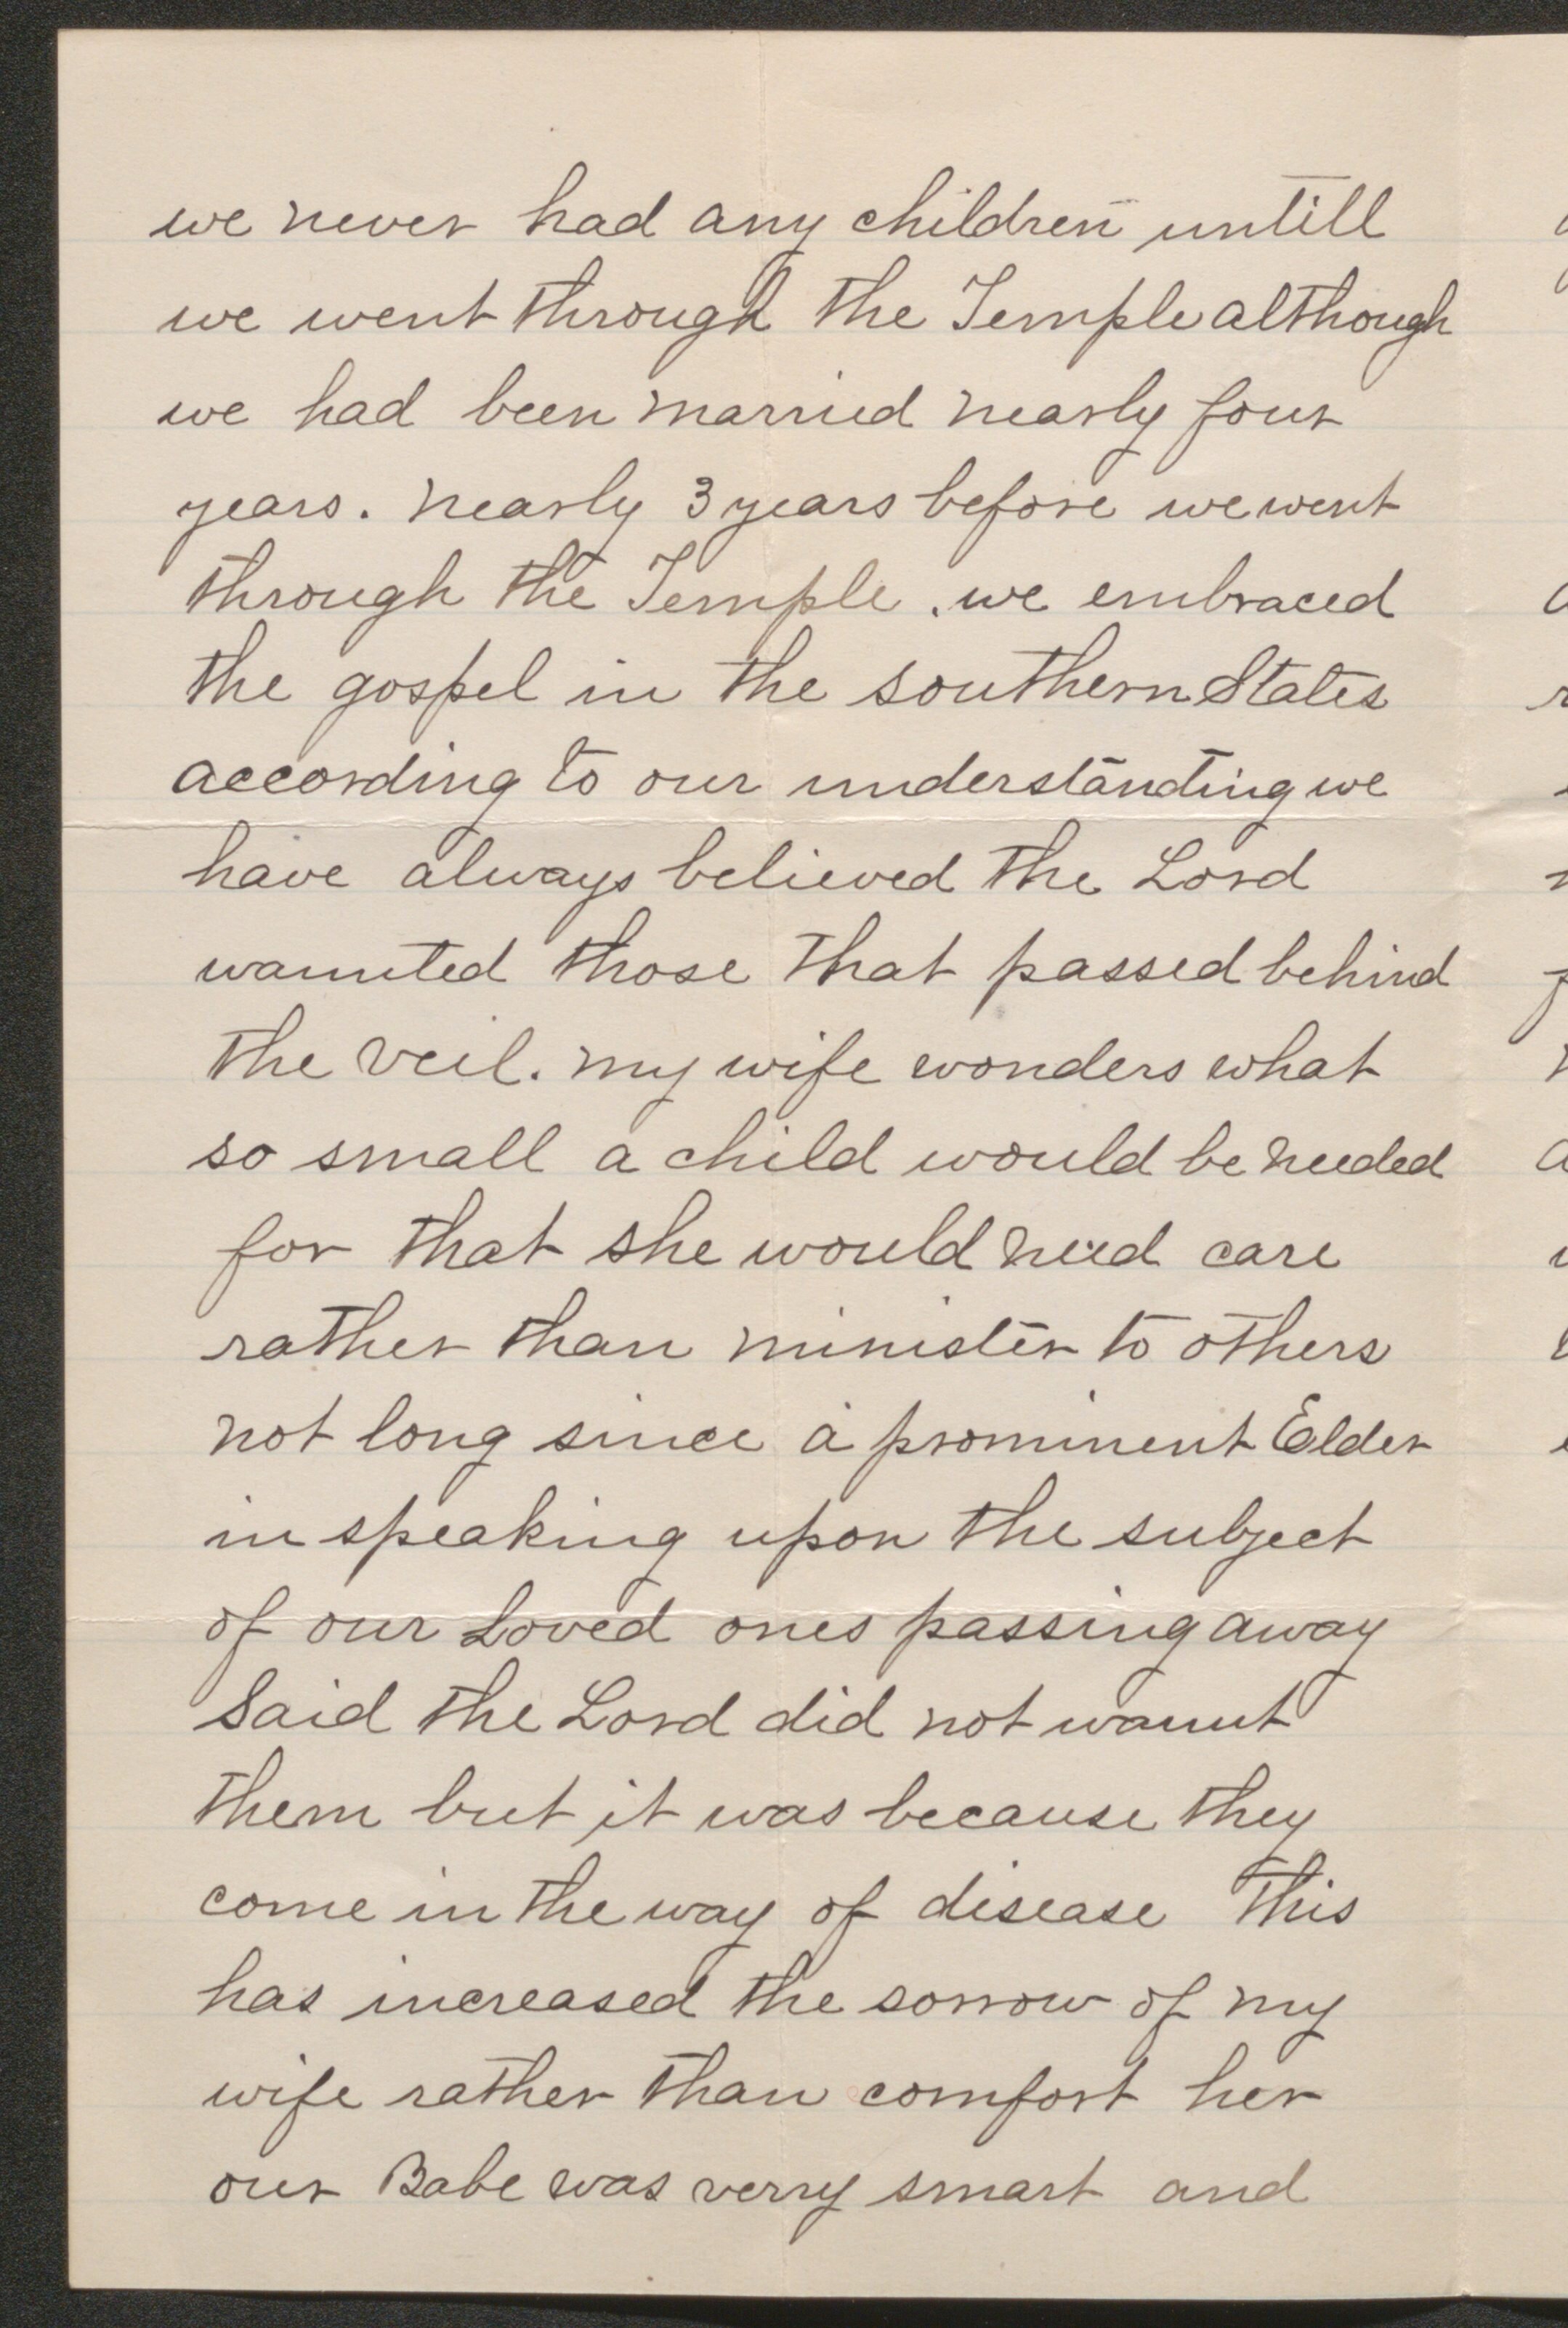 we never had any children untill
we went through the Temple although
we had been married nearly four
years. nearly 3 years before we went
through the Temple. we embraced
the gospel in the southern States
according to our understanding we
have always believed the Lord
wannted those that passed behind
the veil. my wife wonders what
so small a child would be needed
for that she would need care
rather than minister to others
not long since a prominent Elder
in speaking upon the subject
of our Loved ones passing away
Said the Lord did not wannt
them but it was because they
come in the way of disease This
has increased the sorrow of my
wife rather than comfort her
our Babe was verry smart and